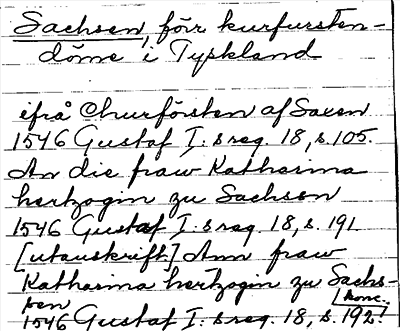 Sachsen, förr kurfursten-
döme i Tyskland
ifrå Churförsten af Saxen
1546 Gustaf I:s reg. 18, s. 105.
An die fraw Katharina
hertzogin zu Sachsen
1546 Gustaf I:s reg. 18, s. 191
[utanskrift] Ann fraw
Katharina hertzogin zu Sachs-
sen [konc.]
1546 Gustaf I:s reg. 18, s. 192.